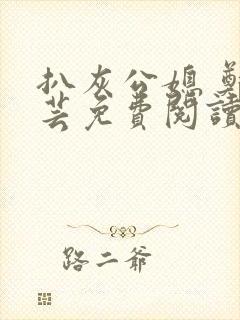 扒灰公媳 鄭
芸免費閱讀
路二爺